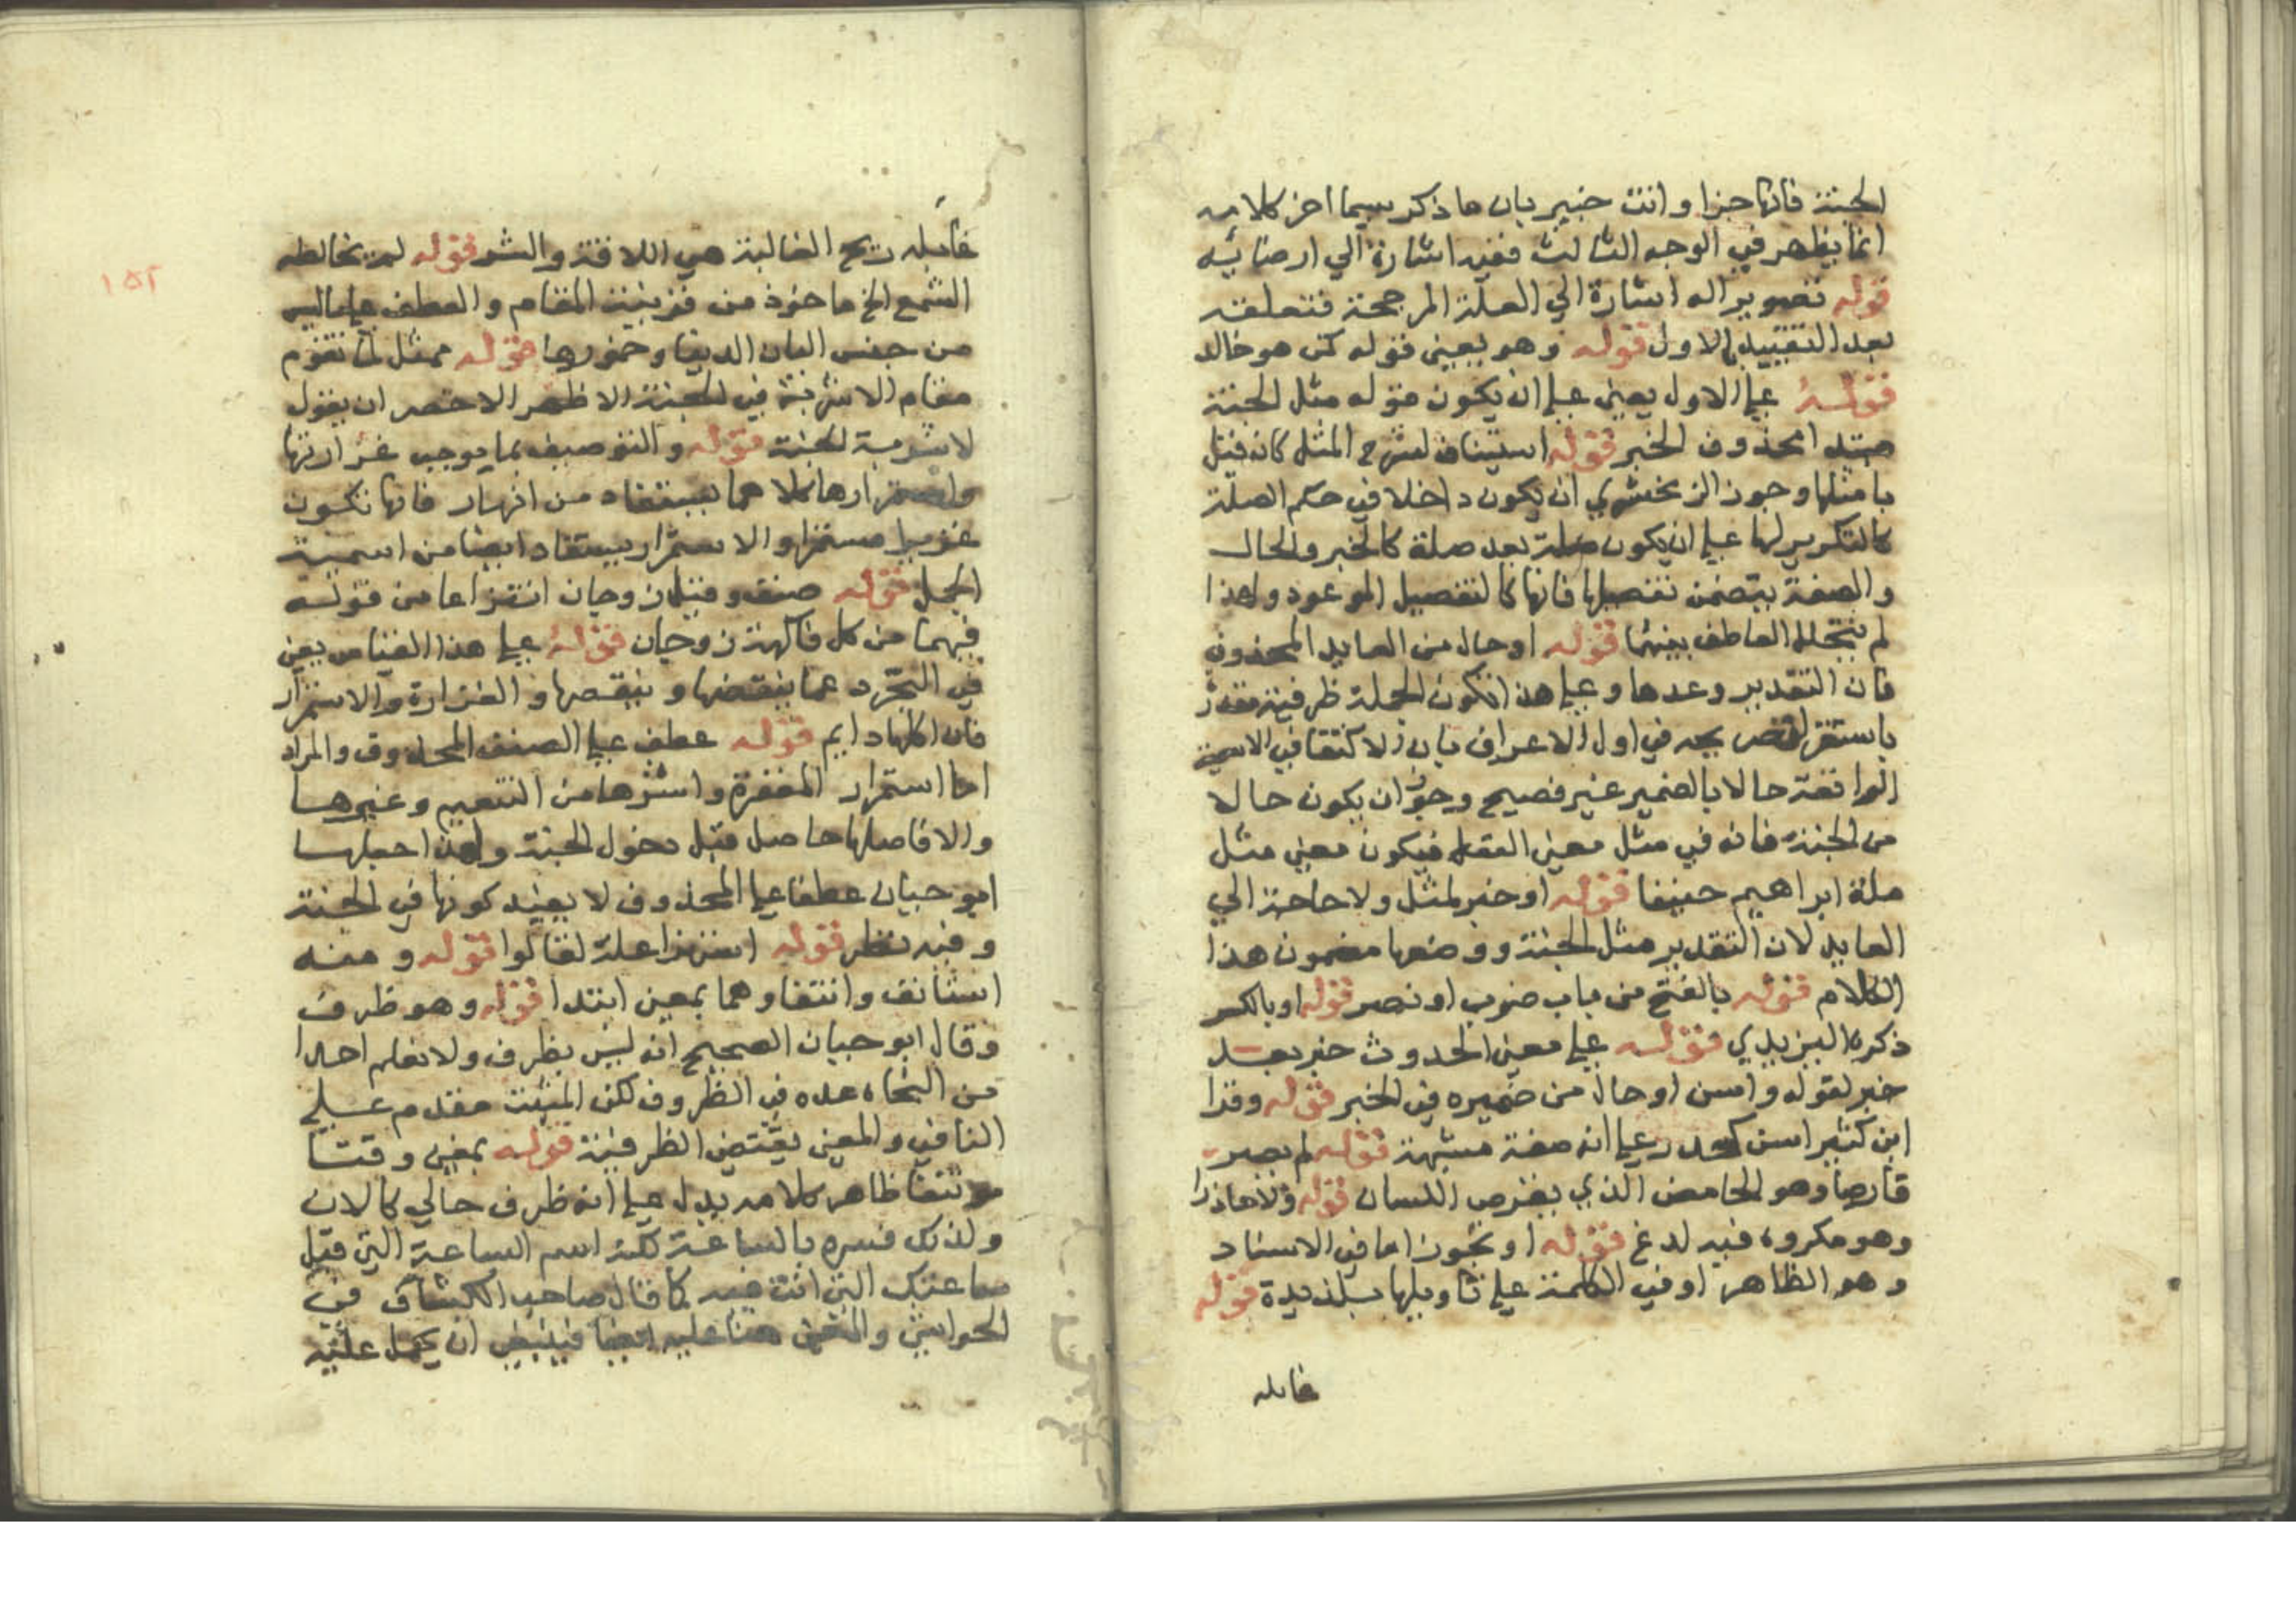 الجنة فانها جزا وانت خبير بان ما ذكر سيما اخر كلامه
انما يظهر في الوجه الثالث ففيه اشارة الي ارضائه
قوله تصوير اله اشارة الي العلة المرجحة فتعلقه
بعد التقييد بالاول قوله وهو يعيني قوله كمن هو خالد
قوله علي الاول يعني علي ان يكون قوله مثل الجنة
مبتدا محذوف الخبر قوله استيناف لشرح المثل كانه قيل
ما مثلها وجوز الزمخشري ان يكون داخلا في حكم الصلة
كالتكرير لها علي ان يكون صلة بعد صلة كالخبر والحال
والصفة يتضمن تفصيلها فانها كالتفصيل الموعود ولهذا
لم يتخلل العاطف بينهما قوله او حال من العايد المحذوف
فان التقدير وعدها وعلي هذا تكون الجملة ظرفية مقدر
باستقر لنصريحه في اول الاعراف بان الاكتفا في الاسمية
الواقعة حالا بالضمير غير فصيح وجوز ان يكون حالا
من الجنة فانه في مثل معني الفعل فيكون معني مثل
ملة ابراهيم حنيفا قوله او خبر لمثل ولا حاجة الي
العايد لان التقدير مثل الجنة ووصفها مضمون هذا
الكلام قوله بالفتح من باب ضرب او نصر قوله او بالكسر
ذكره اليزيدي قوله علي معني الحدوث خبر بعد
خبر لقوله واسن او حال من ضميره في الخبر قوله وقرا
ابن كثير اسن كحذر علي انه صفة مشبهة قوله لم يصر
قارصا وهو الحامض الذي يقرص اللسان قوله ولا حاذرا
وهو مكروه فيه لدغ قوله او تجوز اما في الاسناد
وهو الظاهر او في الكلمة علي تاويلها بلذيذة قوله
غايله
غايله ريح الغالبة هي اللاقة والشر قوله لم يخالطه
الشمع الخ ماخوذ من قرينة المقام والعطف علي ماليس
من جنس البان الدنيا وخمورها قوله ممثل لما تقوم
مقام الاشربة في الجنة الاظهر الاخصر ان يقول
لاشربة الجنة قوله والتوصيف بما يوجب غزارتها
واستمرارها كلاهما يستفاد من انهار فانها تكون
غزيرا مستمرا والاستمرار يستفاد ايضا من اسمية
الجمل قوله صنف وقيل زوجان انتزاعا من قوله
فيهما من كل فاكهة زوجان قوله علي هذا القياس يعني
في التجرد عما ينقضها وينقصها والغزارة والاستمرار
فان اكلها دايم قوله عطف علي الصنف المحذوف والمراد
اما استمرار المغفرة واثرها من التنعيم وغيرها
والا فاصلها حاصل قبل دخول الجنة ولهذا جعلها
ابو حيان عطفا علي المحذوف لا بقيد كونها في الجنة
وفيه نظر قوله استهزا علة لقالوا قوله ومنه
استانف وانتفا وهما بمعني ابتدا قوله وهو ظرف
وقال ابو حيان الصحيح انه ليس بظرف ولا نعلم احدا
من النحاه عده في الظروف لكن المثبت مقدم علي
النافي والمعني يقتضي الظرفية قوله بمعني وقتا
موتنفا ظاهر كلامه يدل علي انه ظرف حالي كالان
ولذلك فسره بالساعة لكنه اسم الساعة التي قبل
ساعتك التي انت فيه كما قال صاحب الكشاف في
الحواشي والمعني هنا عليه ايضا فينبغي ان يحمل عليه
١٥٢